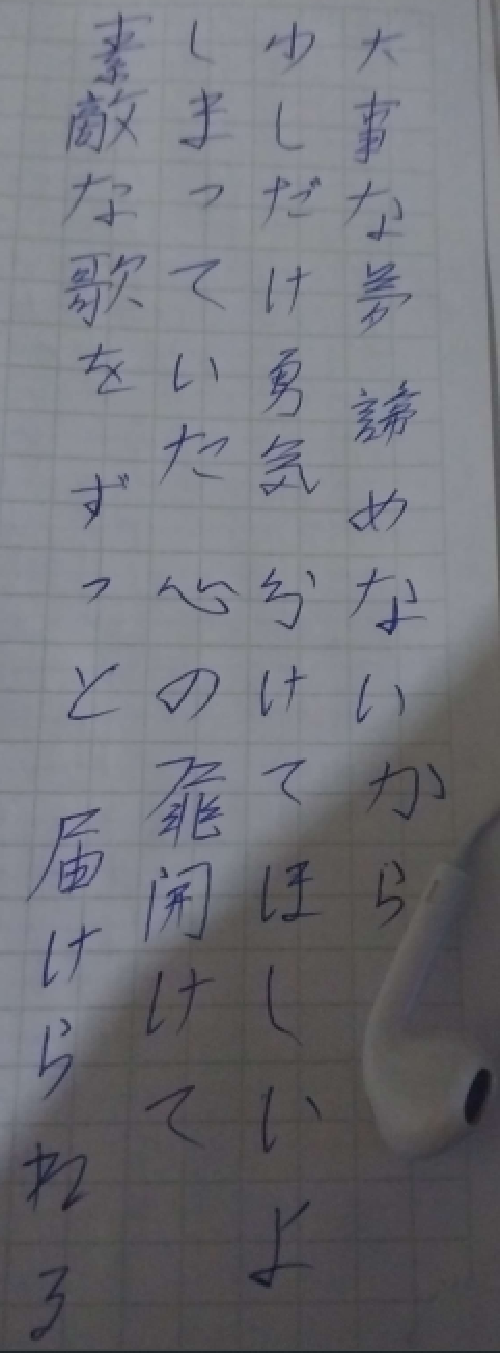 大事な夢 諦めないから
少しだけ勇気 分けてほしいよ
しまっていた 心の扉開けて
素敵な歌を ずっと 届けられる